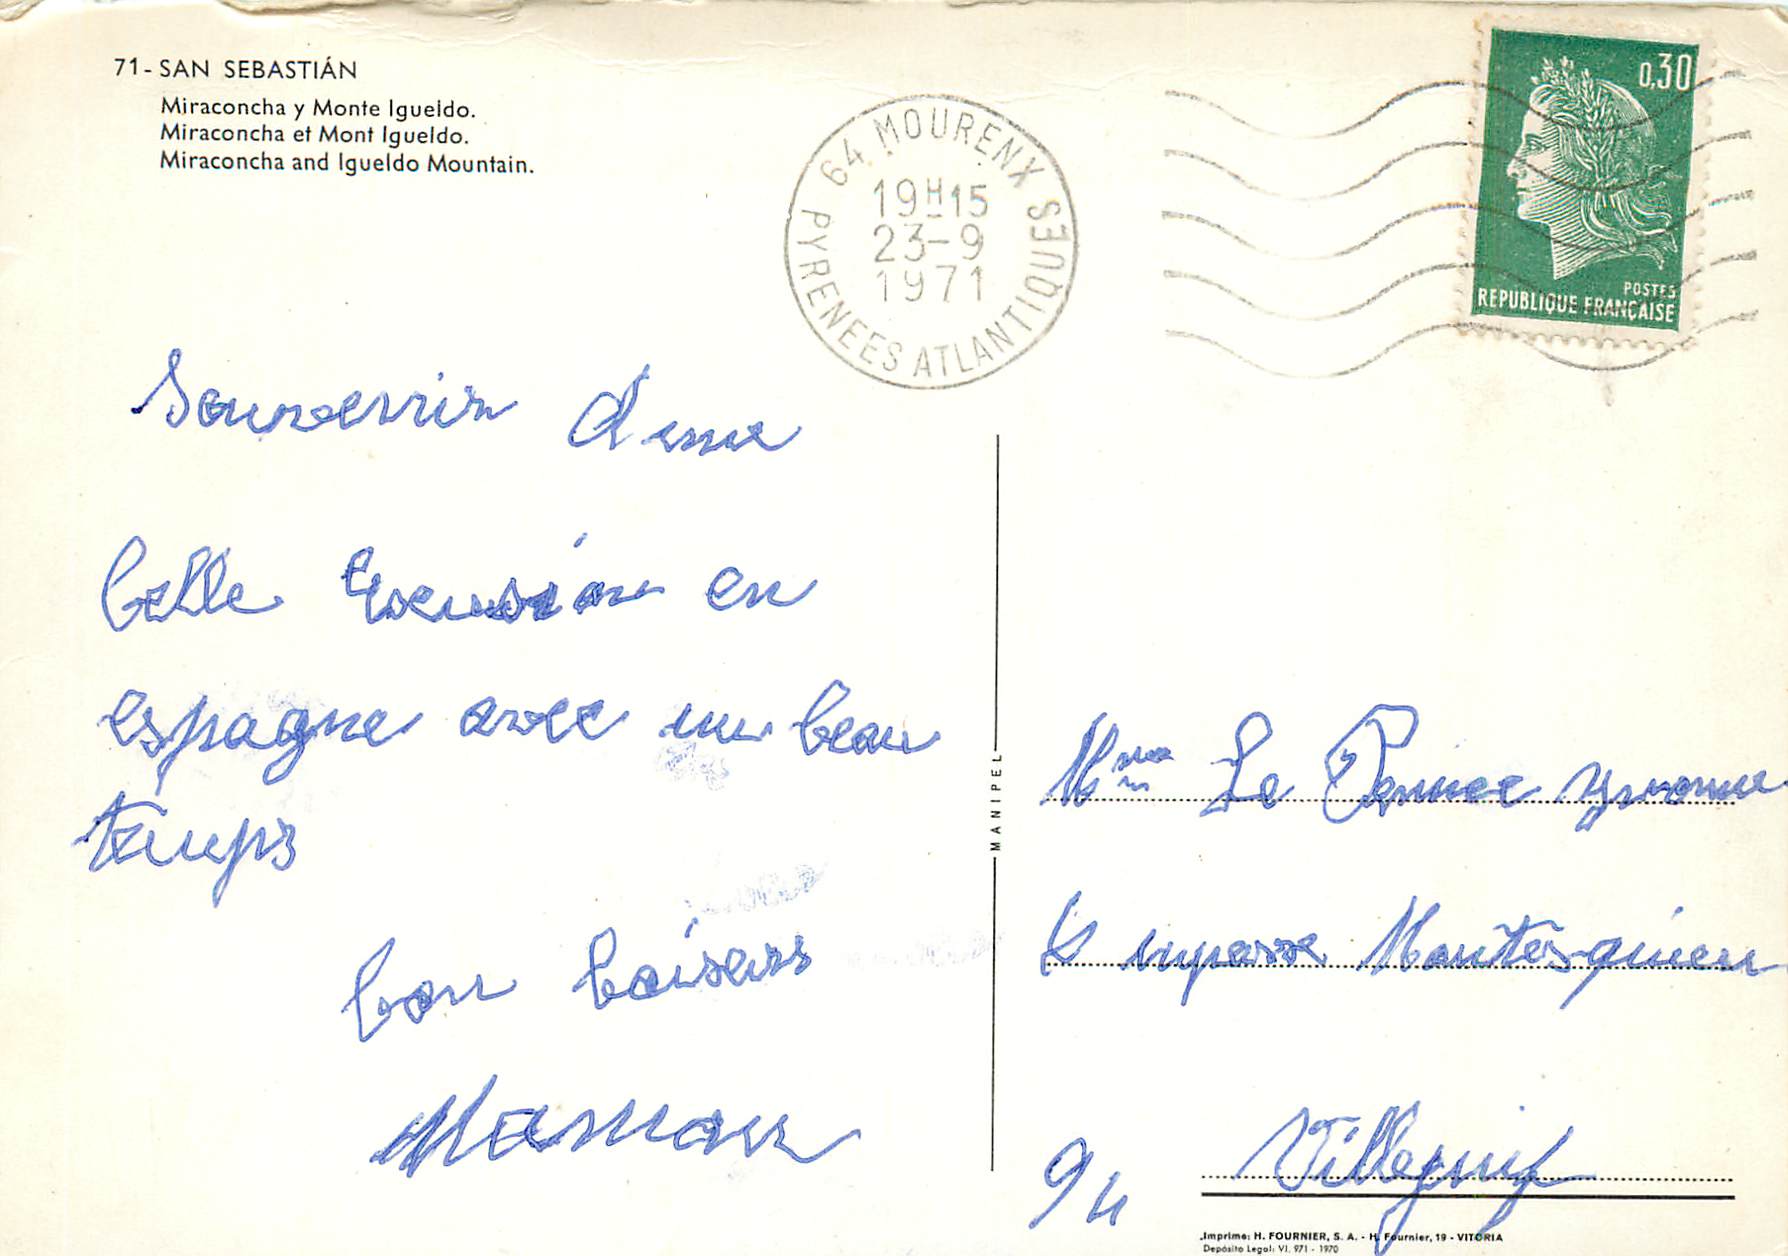 71 - SAN SEBASTIÁN
Miraconcha y Monte Igueldo.
Miraconcha et Mont Igueldo.
Miraconcha and Igueldo Mountain.
64 MOURENX
19H15
23-9
1971
PYRENEES ATLANTIQUES
0,30
POSTES
REPUBLIQUE FRANÇAISE
Souvenir d'une
belle Excusion en
espagne avec un beau
temps
bon baisers
Maman
MANIPEL
Mme Le Pennec yvonne
impasse Montesquieu
94 Villejuif
Imprime: H. FOURNIER, S. A. - H. Fournier, 19 - VITORIA
Depósito Legal: VI. 971 - 1970